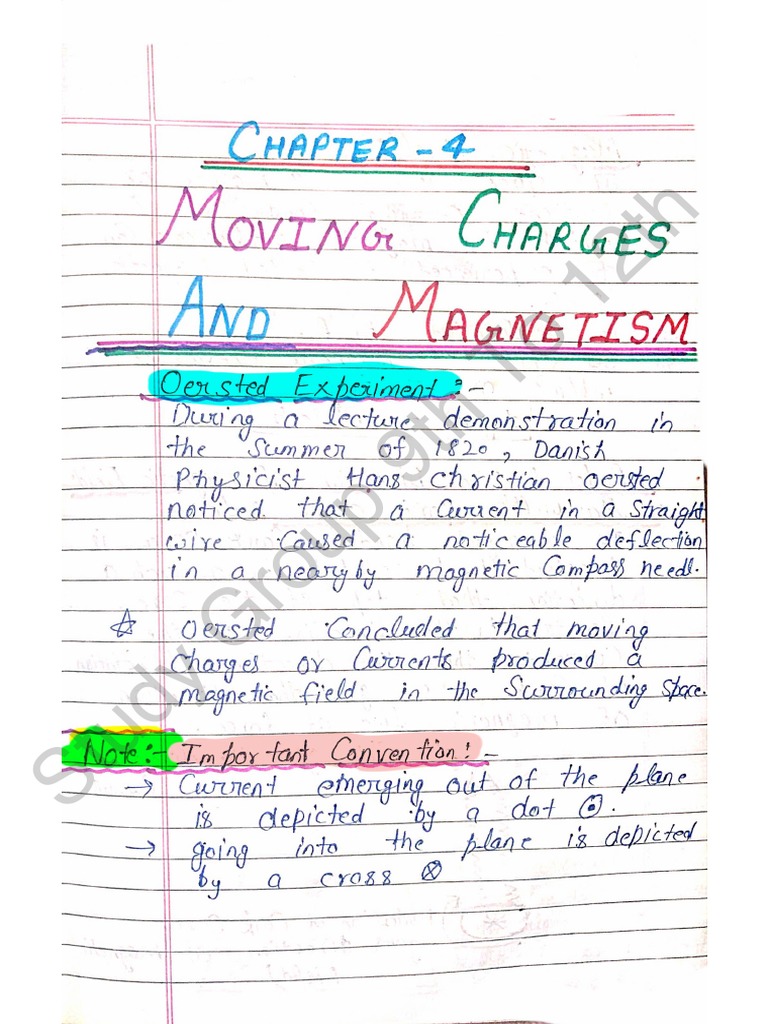 CHAPTER - 4
MOVING CHARGES
AND MAGNETISM
Oersted Experiment :-
During a lecture demonstration in
the Summer of 1820, Danish
Physicist Hans christian oersted
noticed that a Current in a straight
wire Caused a noticeable deflection
in a nearyby magnetic Compass needl.
☆ Oersted Concluded that moving
charges or Currents produced a
magnetic field in the Surrounding Space.
Note:- Important Convention! -
→ Current emerging out of the plane
is depicted by a dot ⊙.
→ going into the plane is depicted
by a cross ⊗
Study Group 9th To 12th